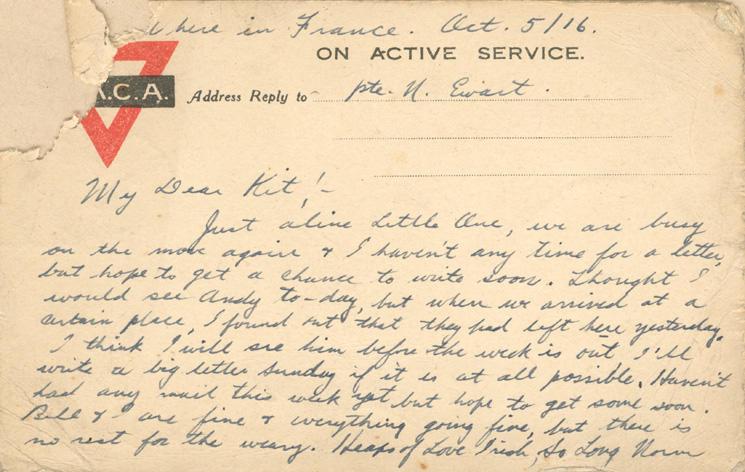 here in France. Oct. 5/16.
ON ACTIVE SERVICE.
.C.A. Address Reply to Pte. N. Ewart.
My Dear Kit!-
Just a line Little One, we are busy
on the move again & I haven't any time for a letter,
but hope to get a chance to write soon. Thought I
would see Andy to-day, but when we arrived at a
certain place, I found out that they had left here yesterday.
I think I will see him before the week is out I'll
write a big letter Sunday if it is at all possible. Haven't
had any mail this week yet but hope to get some soon.
Bill & I are fine & everything going fine, but there is
no rest for the weary. Heaps of Love So Long Norm